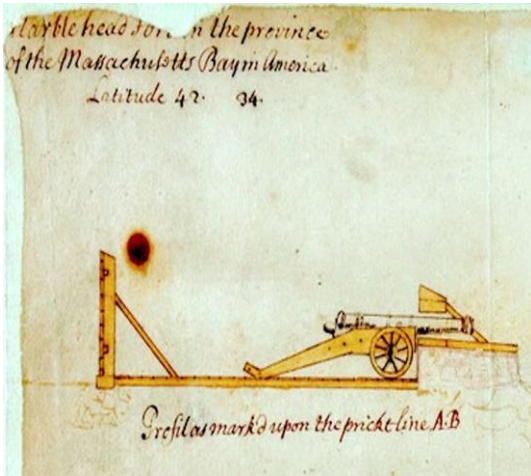 Marble head Fort in the province
of the Massachusetts Bay in America
Latitude 42. 34.
Profil as mark'd upon the prickt line A.B